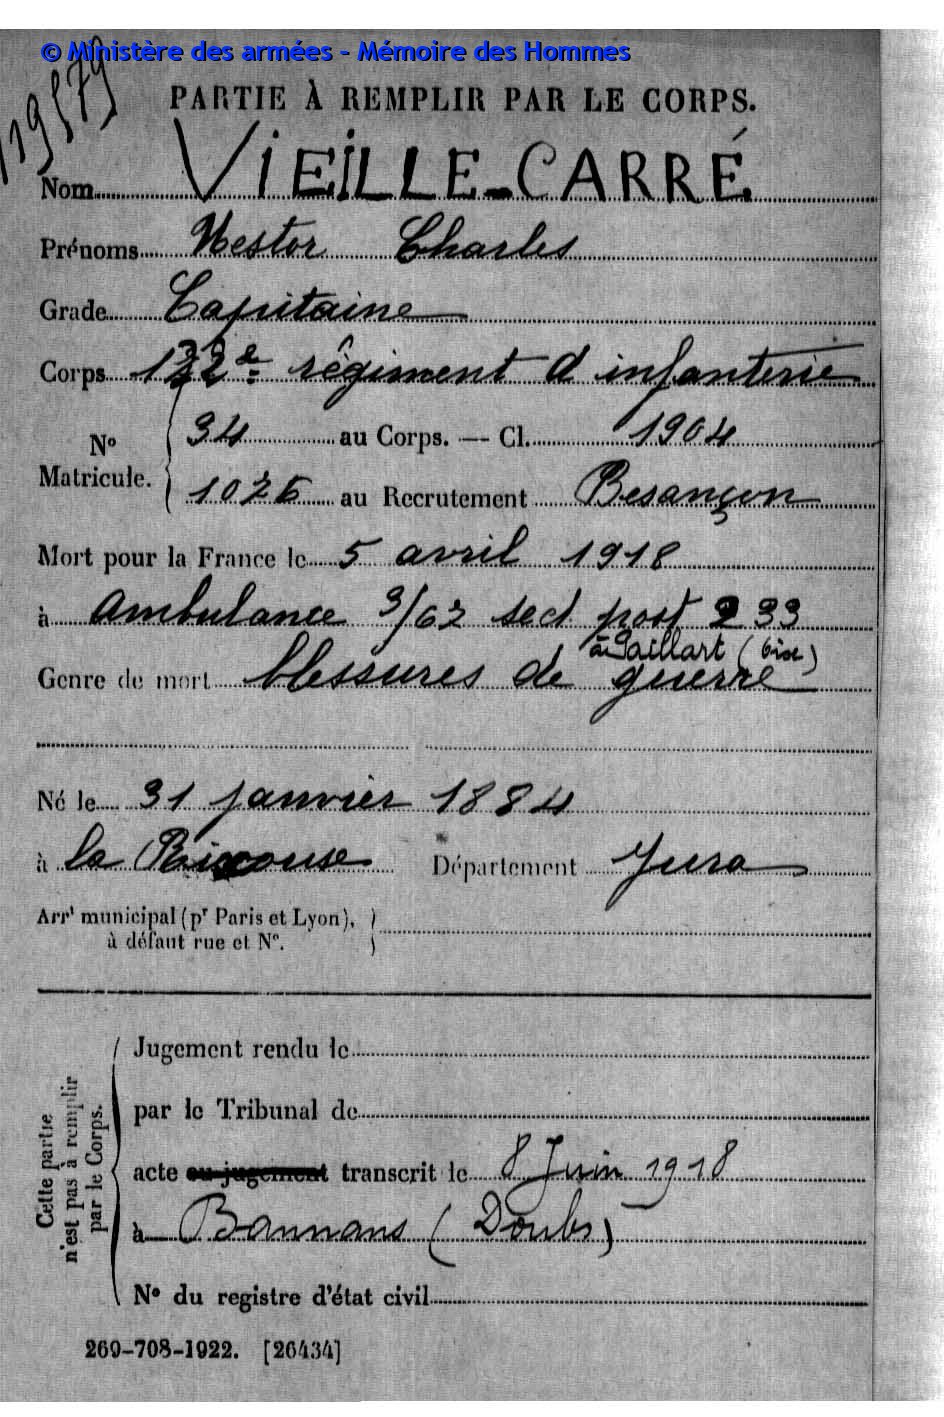 © Ministère des armées - Mémoire des Hommes
119579
PARTIE À REMPLIR PAR LE CORPS.
Nom VIEILLE-CARRÉ
Prénoms Nestor Charles
Grade Capitaine
Corps 132e régiment d infanterie
N° Matricule. 34 au Corps. — Cl. 1904
1026 au Recrutement Besançon
Mort pour la France le 5 avril 1918
à Ambulance 3/62 sect post 233
à Paillart (Oise)
Genre de mort blessures de guerre
Né le 31 janvier 1884
à la Rixouse Département Jura
Arrt municipal (pr Paris et Lyon), à défaut rue et N°.
Cette partie n'est pas à remplir par le Corps.
Jugement rendu le
par le Tribunal de
acte ou jugement transcrit le 8 Juin 1918
à Bannans (Doubs)
N° du registre d'état civil
269-708-1922. [26434]